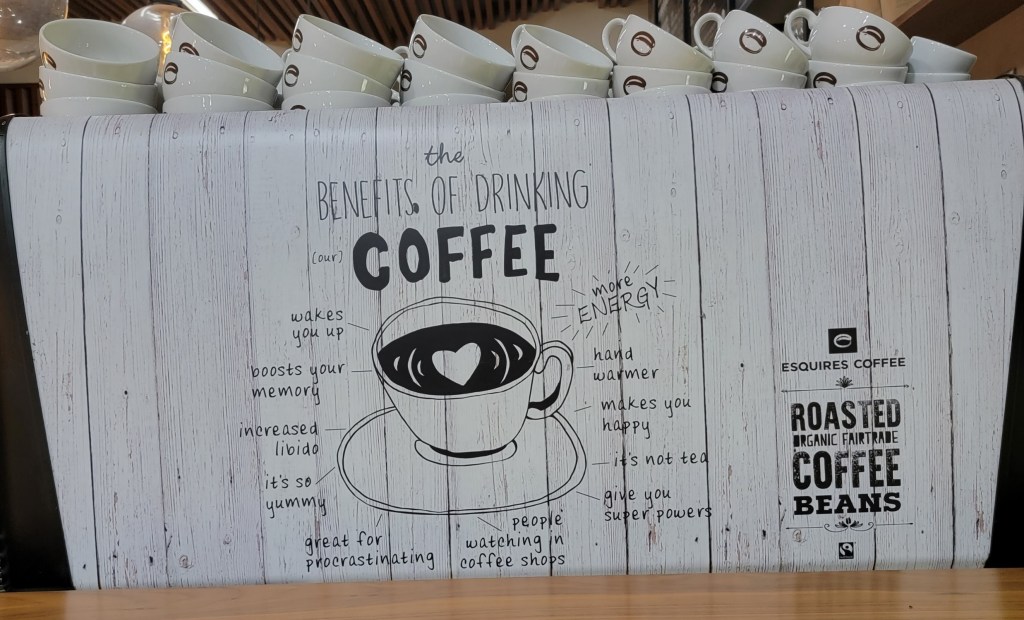 the
BENEFITS OF DRINKING
(our) COFFEE
more
ENERGY
wakes
you up
boosts your
memory
increased
libido
it's so
yummy
great for
procrastinating
people
watching in
coffee shops
hand
warmer
makes you
happy
it's not tea
give you
super powers
ESQUIRES COFFEE
ROASTED
ORGANIC FAIRTRADE
COFFEE
BEANS